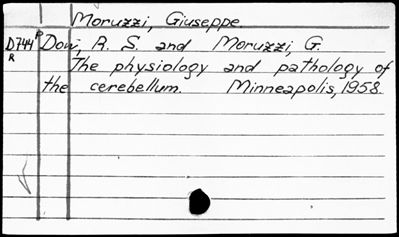 Moruzzi, Giuseppe
D744 P Dow, R. S. and Moruzzi, G.
R The physiology and pathology of
the cerebellum. Minneapolis, 1958.